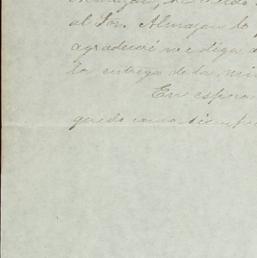 al Sr. Almazan lo
agradeceré me diga
la entrega de la mi
En espera
quedo como siempre